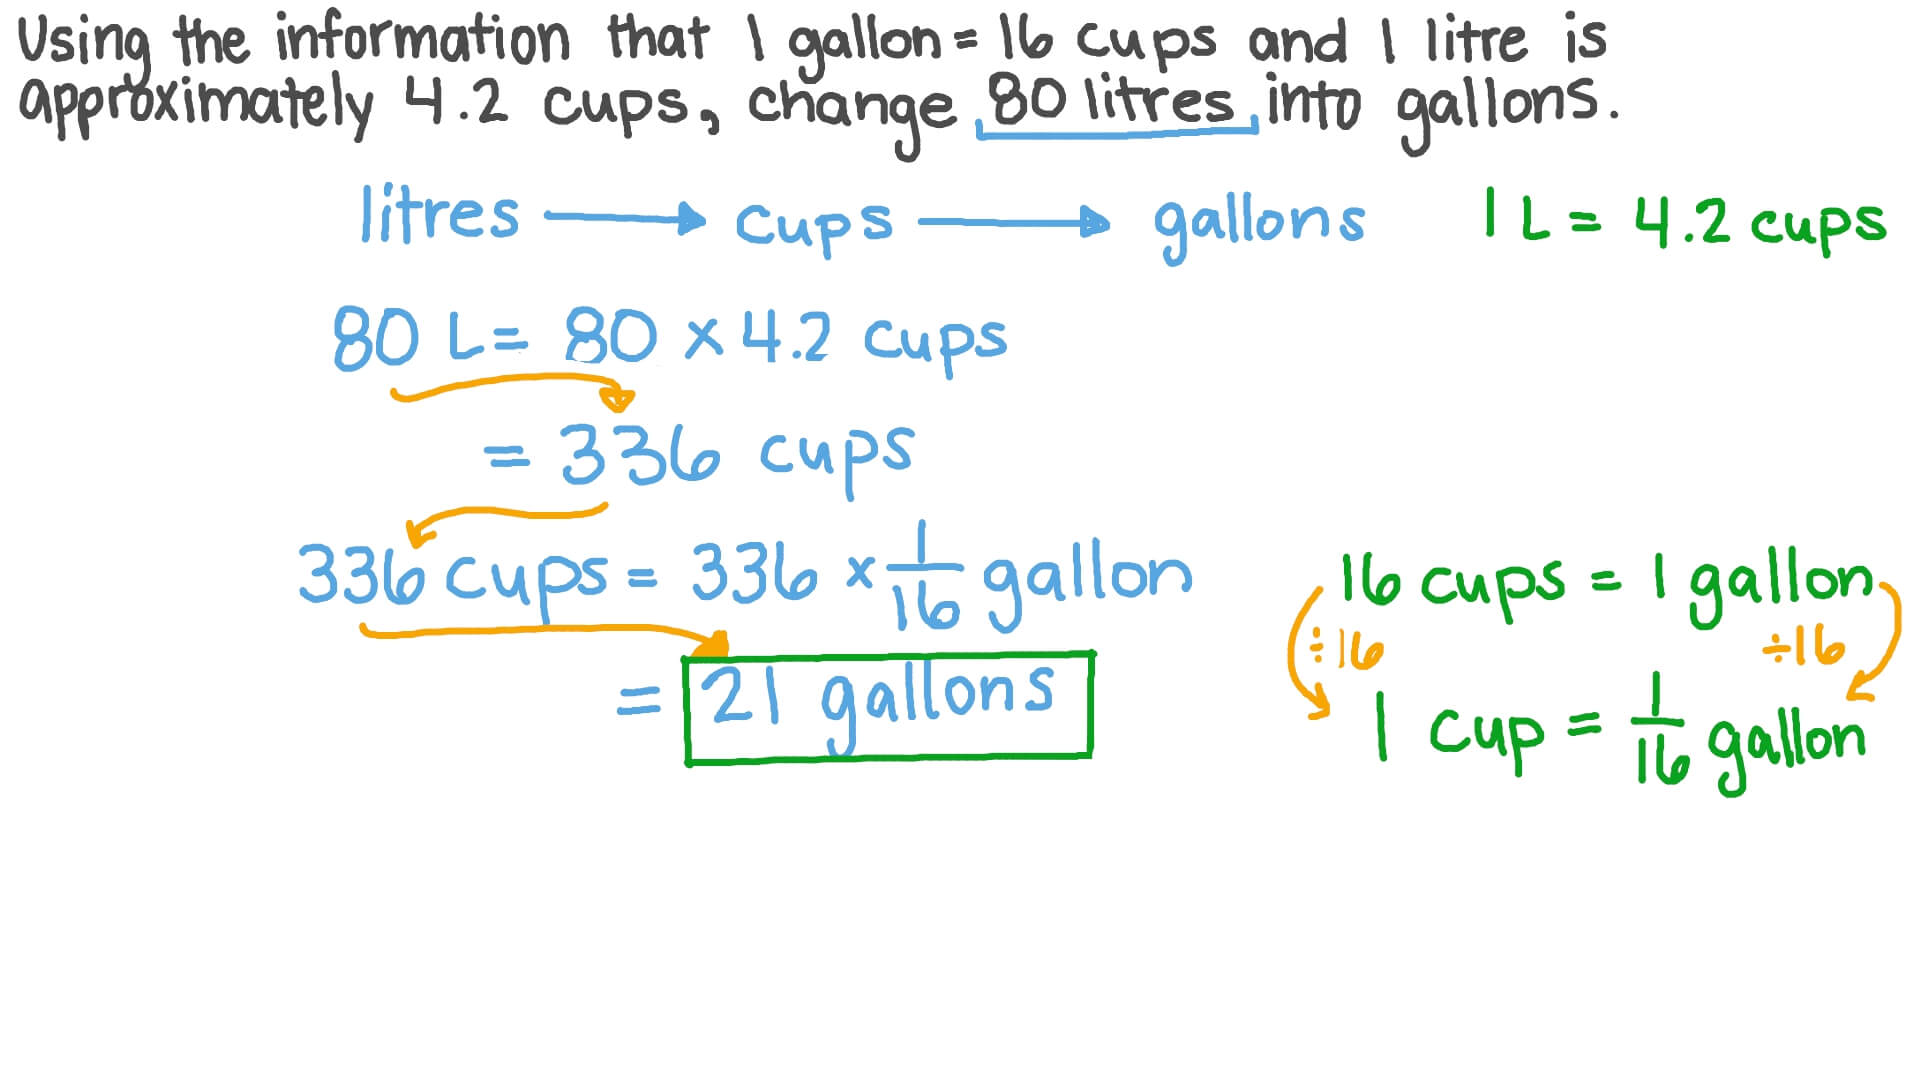 Using the information that 1 gallon = 16 cups and 1 litre is
approximately 4.2 cups, change 80 litres into gallons.
litres → cups → gallons
1 L = 4.2 cups
80 L = 80 × 4.2 cups
= 336 cups
336 cups = 336 × 1/16 gallon
= 21 gallons
16 cups = 1 gallon
÷16 ÷16
1 cup = 1/16 gallon